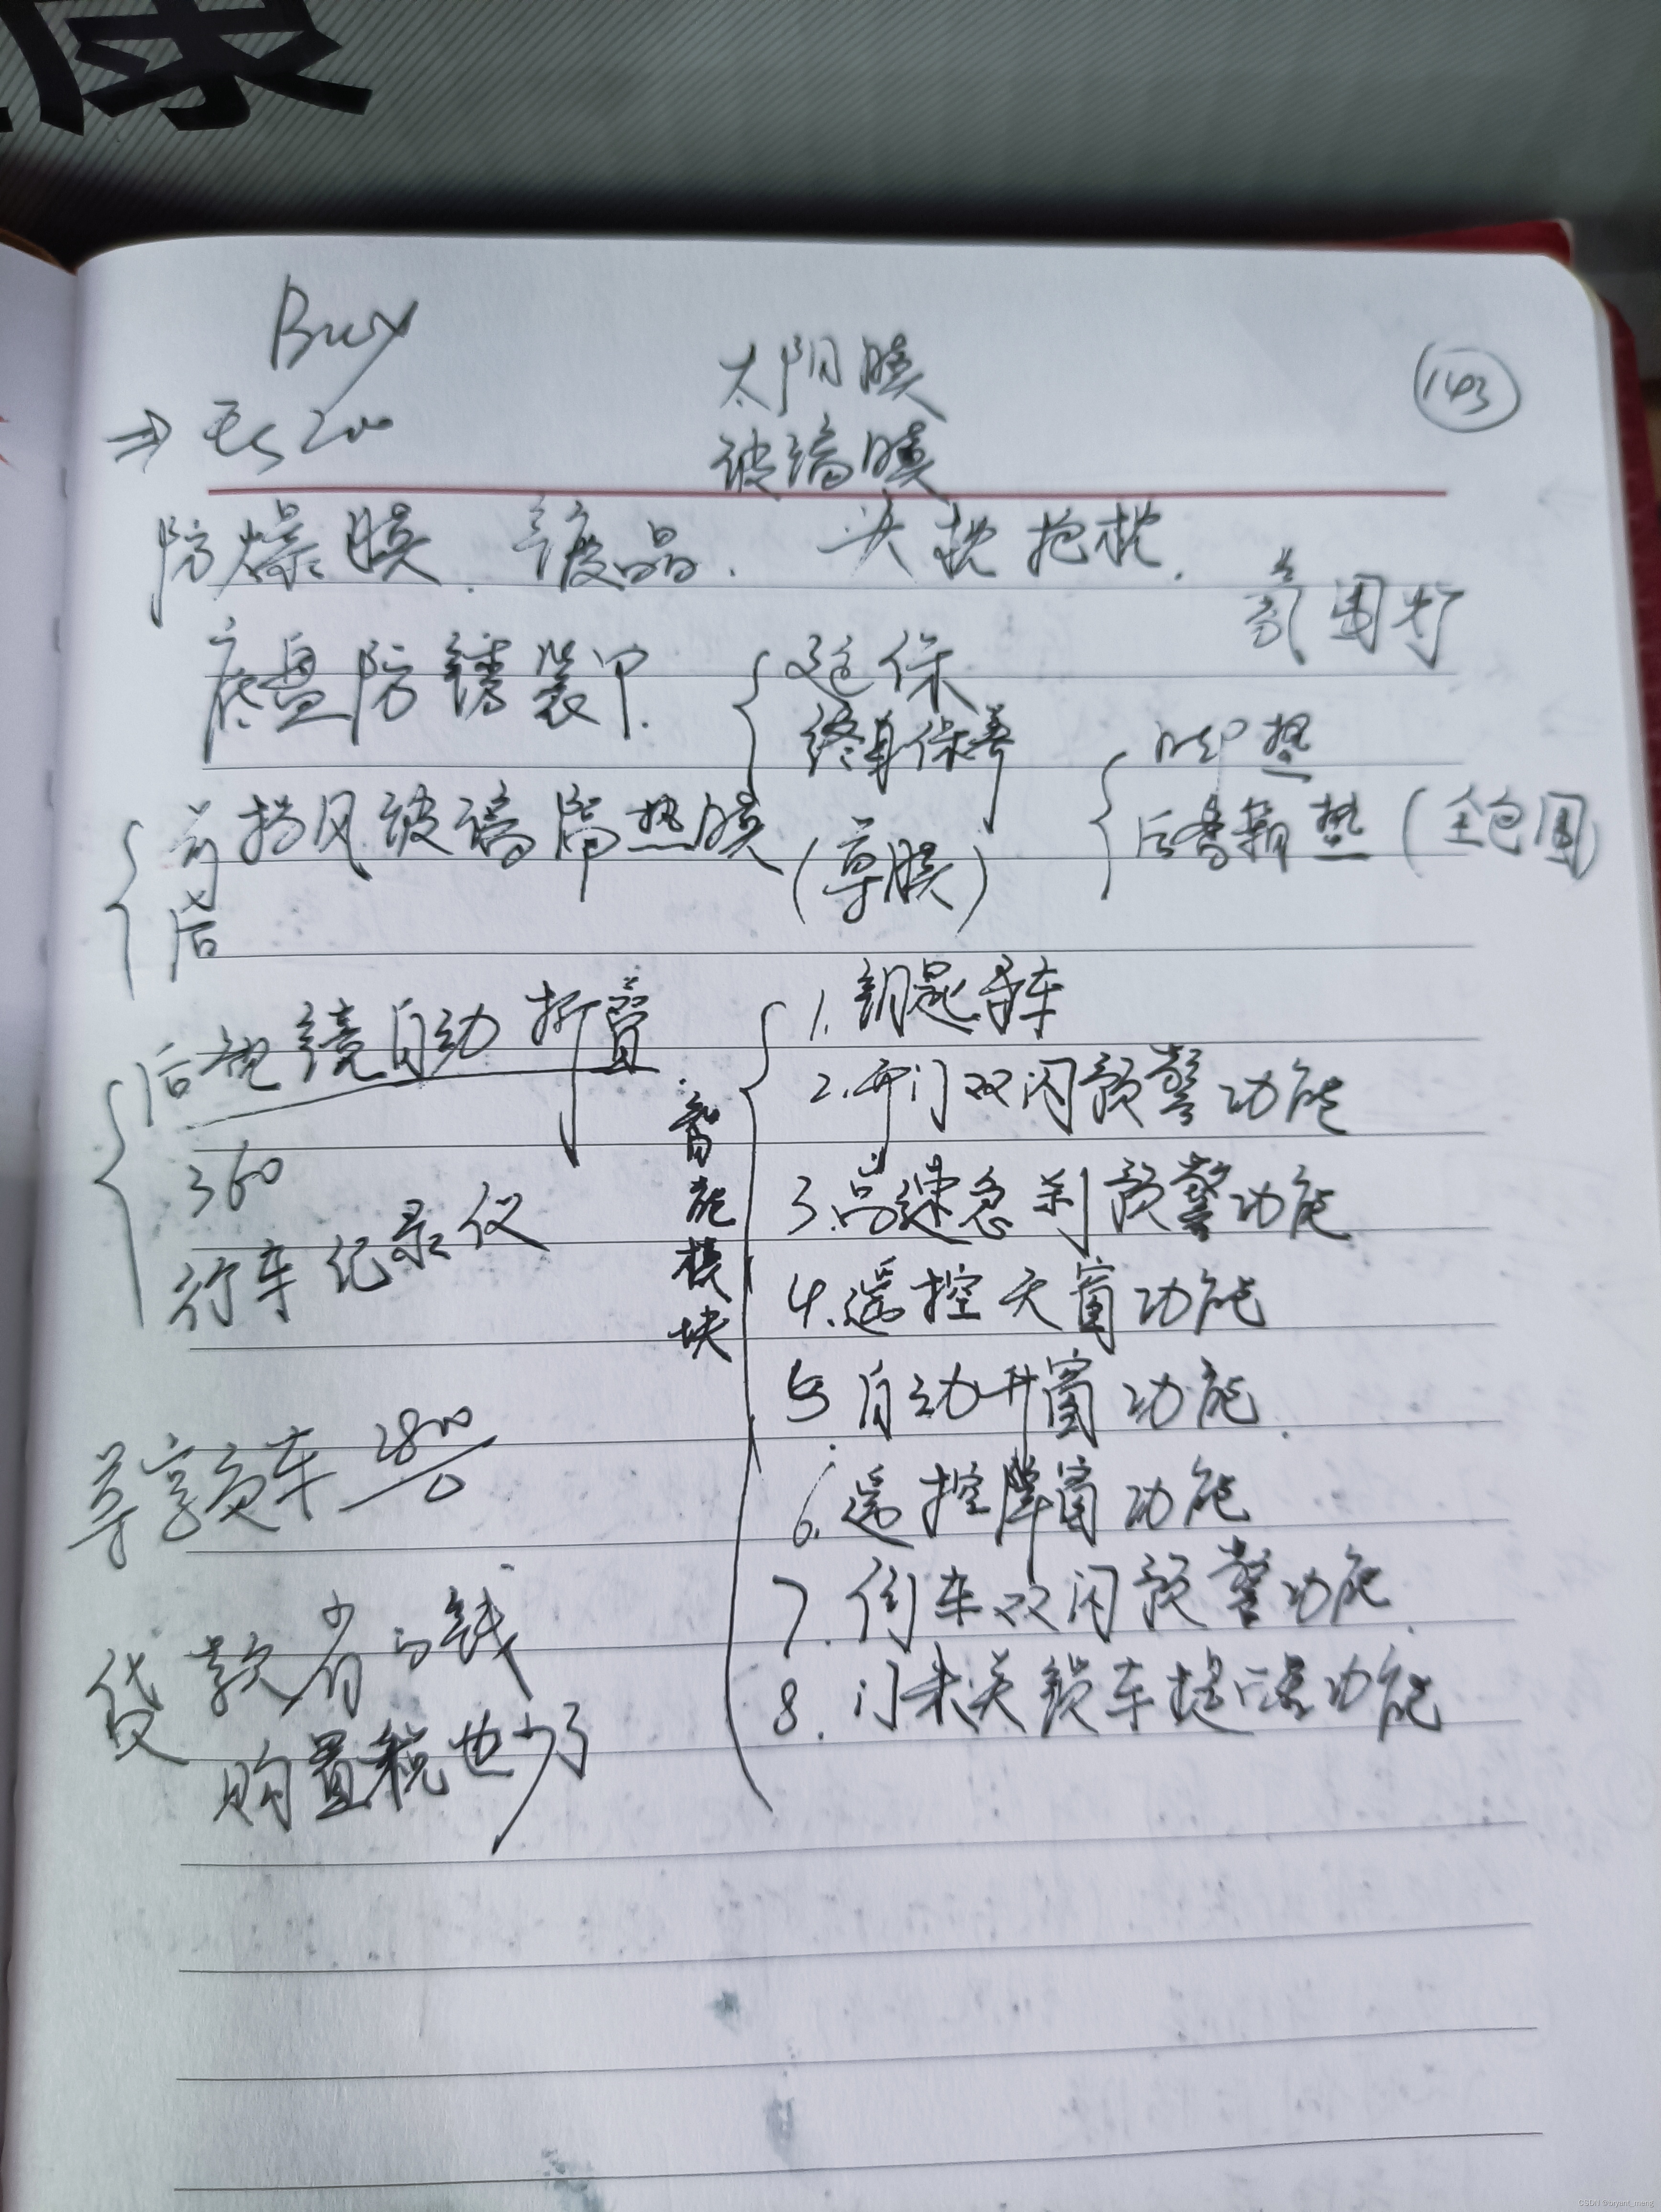 康
Buy
⇒ ES200
太阳膜
玻璃膜
143
防爆膜. 镀晶. 头枕抱枕.
氛围灯
底盘防锈装甲.
延保
终身保养
脚垫
后备箱垫(全包围
前挡风玻璃隔热膜
(尊膜)
后
后视镜自动折叠
360
行车纪录仪
智能模块
1. 钥匙寻车
2. 开门双闪预警功能
3. 高速急刹预警功能
4. 遥控天窗功能
5. 自动升窗功能.
6. 遥控降窗功能
7. 倒车双闪预警功能.
8. 门未关锁车提醒功能
尊享 车 2800
贷款省的钱
购置税也少了
CSDN @bryant_meng